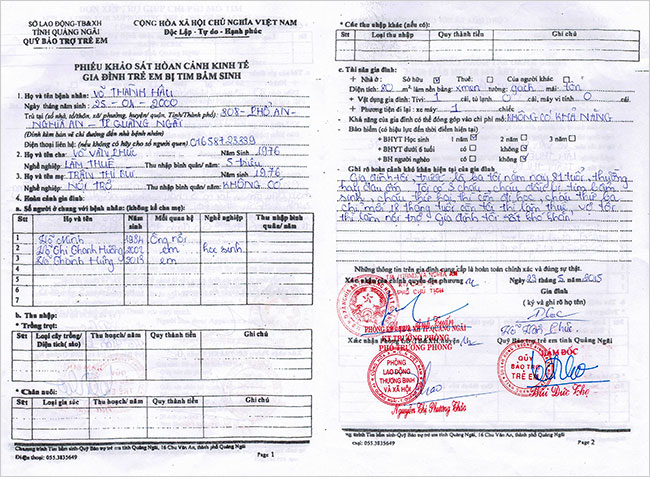 SỞ LAO ĐỘNG-TB&XH
TỈNH QUẢNG NGÃI
QUỸ BẢO TRỢ TRẺ EM
CỘNG HÒA XÃ HỘI CHỦ NGHĨA VIỆT NAM
Độc Lập - Tự do - Hạnh phúc
PHIẾU KHẢO SÁT HOÀN CẢNH KINH TẾ
GIA ĐÌNH TRẺ EM BỊ TIM BẨM SINH
1. Họ và tên bệnh nhân: VÕ THANH HẬU
Ngày tháng năm sinh: 25-01-2000
Trú tại (số nhà, tổ/thôn, xã/ phường, huyện/ quận, Tỉnh/Thành phố): 208-PHỔ AN-
NGHĨA AN - TP QUẢNG NGÃI
(Đính kèm bản vẽ chỉ đường đến nhà bệnh nhân)
Điện thoại liên hệ: (nếu không có hãy cho số người quen)
2. Họ và tên cha: VÕ VĂN PHÚC Năm sinh 1976
Nghề nghiệp: LÀM THUÊ Thu nhập bình quân/ năm: 5 triệu
3. Họ và tên mẹ: TRẦN THỊ BƯ Năm sinh: 1976
Nghề nghiệp: NỘI TRỢ Thu nhập bình quân/ năm: KHÔNG CÓ
4. Hoàn cảnh gia đình:
a. Số người ở chung với bệnh nhân: (không kể cha mẹ)
Stt Họ và tên Năm sinh Mối quan hệ Nghề nghiệp Thu nhập bình quân/ năm
1 Võ Minh 1934 Ông nội
2 Võ Thanh Hường em học sinh
3 Võ Thanh Hưng 2013 em
7
b. Thu nhập:
* Trồng trọt:
Stt Loại cây trồng/ Diện tích(sào) Thu hoạch/ năm Quy thành tiền Ghi chú
* Chăn nuôi:
Stt Loại gia súc Thu hoạch/ năm Quy thành tiền Ghi chú
Chương trình Tim bẩm sinh-Quỹ Bảo trợ trẻ em Quảng Ngãi, 16 Chu Văn An, thành phố Quảng Ngãi
Điện thoại: 055.3835649
Page 1
* Các thu nhập khác (nếu có):
Stt Loại thu nhập Quy thành tiền Ghi chú
c. Tài sản gia đình:
+ Nhà ở: Sở hữu Thuê: Của người khác
Diện tích: 80 m² làm nền bằng: xmăn tường: gạch mái: tôn
+ Vật dụng gia đình: Tivi: 1 cái, tủ lạnh 0 cái, máy vi tính 0 cái
+ Phương tiện đi lại: xe máy 1 chiếc
Khả năng của gia đình có thể đóng góp vào chi phí mổ: KHÔNG CÓ KHẢ NĂNG
Bảo hiểm (có hiệu lực đến thời điểm hiện tại)
+ BHYT Học sinh 1 năm 2 năm 3 năm
+ BH tự nguyện có không
+ BH người nghèo có không
Ghi rõ hoàn cảnh khó khăn hiện tại của gia đình:
Gia đình tôi trước là ba tôi năm nay 81 tuổi, thường
hay đau ốm. Tôi có 3 cháu, cháu đầu bị tim bẩm
sinh, cháu thứ hai thì còn đi học, cháu thứ ba
chỉ mới 18 tháng tuổi còn tôi thì làm thuê, vợ tôi
thì làm nội trợ. Gia đình tôi rất khó khăn.
Những thông tin trên gia đình cung cấp là hoàn toàn chính xác và đúng sự thật.
Xác nhận của chính quyền địa phương
Ngày 22 tháng 2 năm 2015
Gia đình
( ký và ghi rõ họ tên)
PHÓ CHỦ TỊCH
Võ Văn Phúc
Xác nhận Phòng LĐ-TB&XH huyện
PHÓ TRƯỞNG PHÒNG
PHÒNG
LAO ĐỘNG
THƯƠNG BINH
VÀ XÃ HỘI
Nguyễn Thị Phương Thảo
Quỹ Bảo trợ trẻ em tỉnh Quảng Ngãi
GIÁM ĐỐC
QUỸ
BẢO TRỢ
TRẺ EM
Bùi Đức Thọ
Chương trình Tim bẩm sinh-Quỹ Bảo trợ trẻ em Quảng Ngãi, 16 Chu Văn An, thành phố Quảng Ngãi
thoại: 055.3835649
Page 2